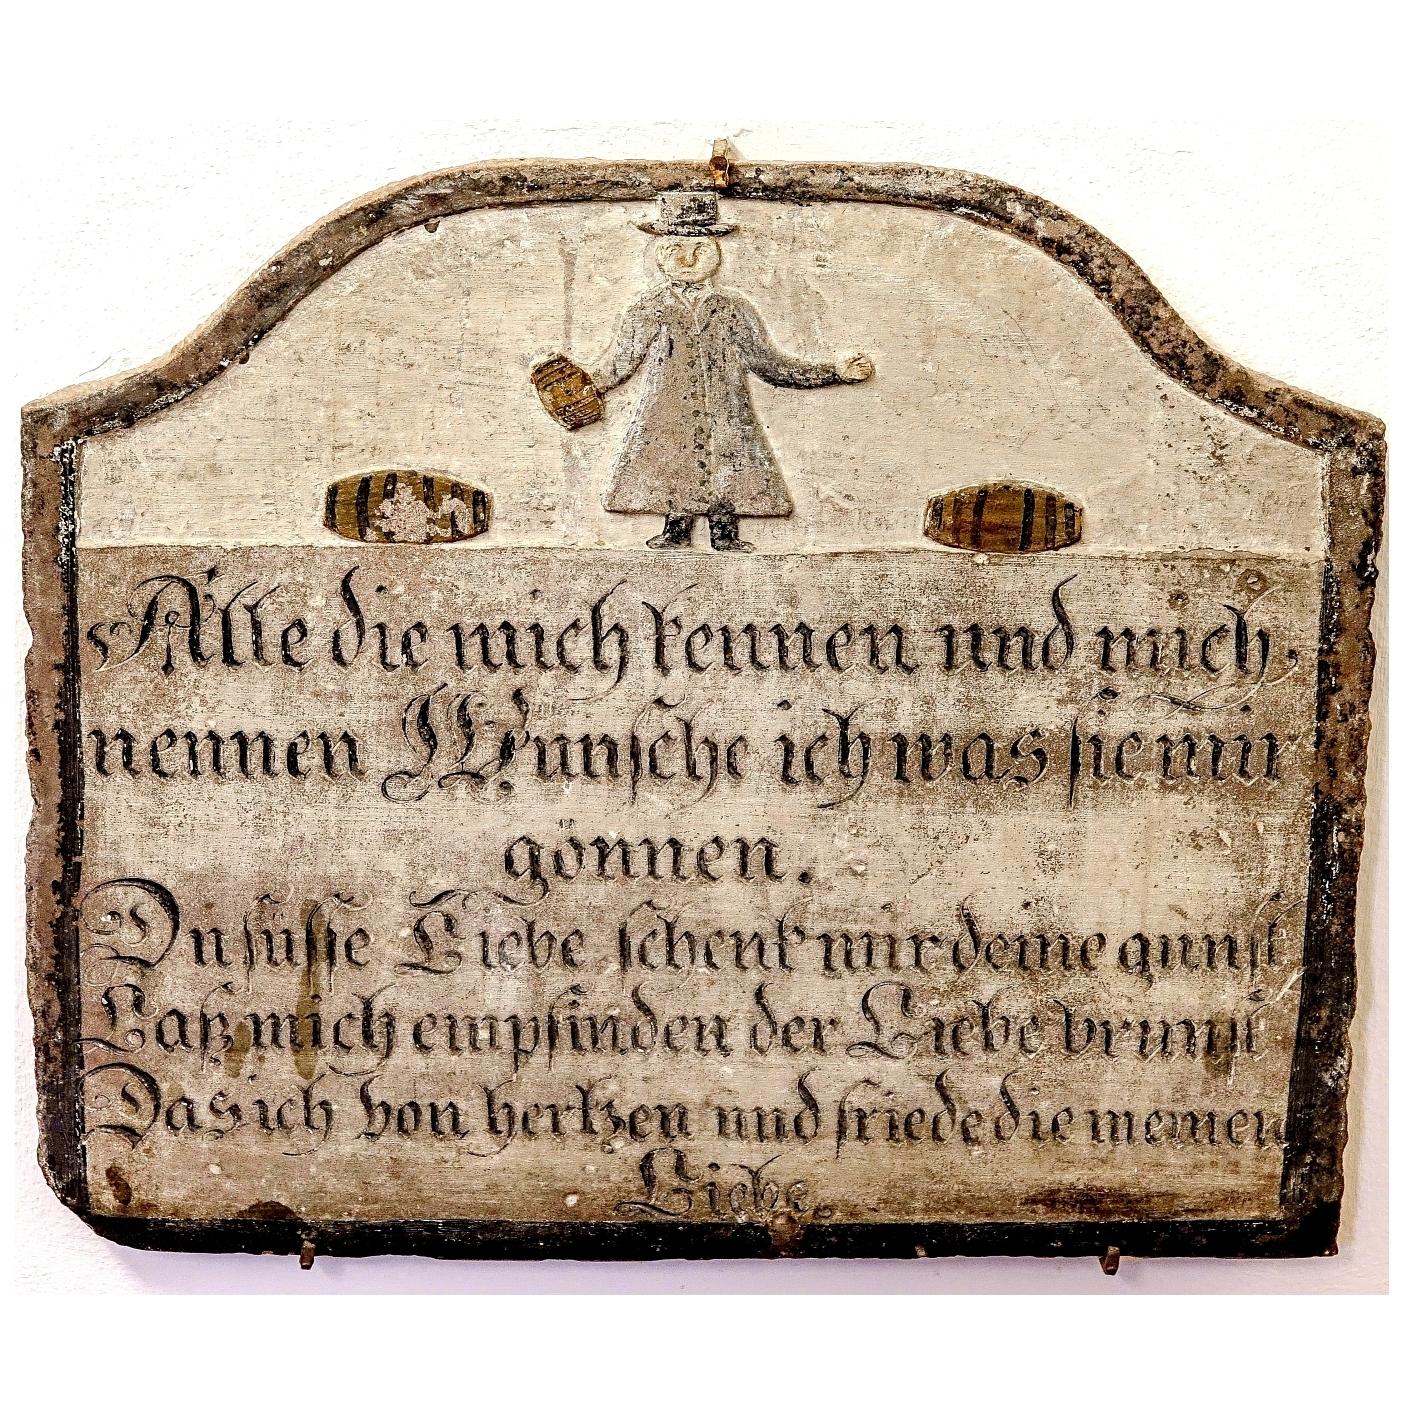 Alle die mich kennen und mich,
nennen Wunsche ich was sie mir
gönnen.
Du süsse Liebe schenk mir deine gunst
Laß mich empfinden der Liebe brunst
Das ich von hertzen und friede die meinen
Liebe.